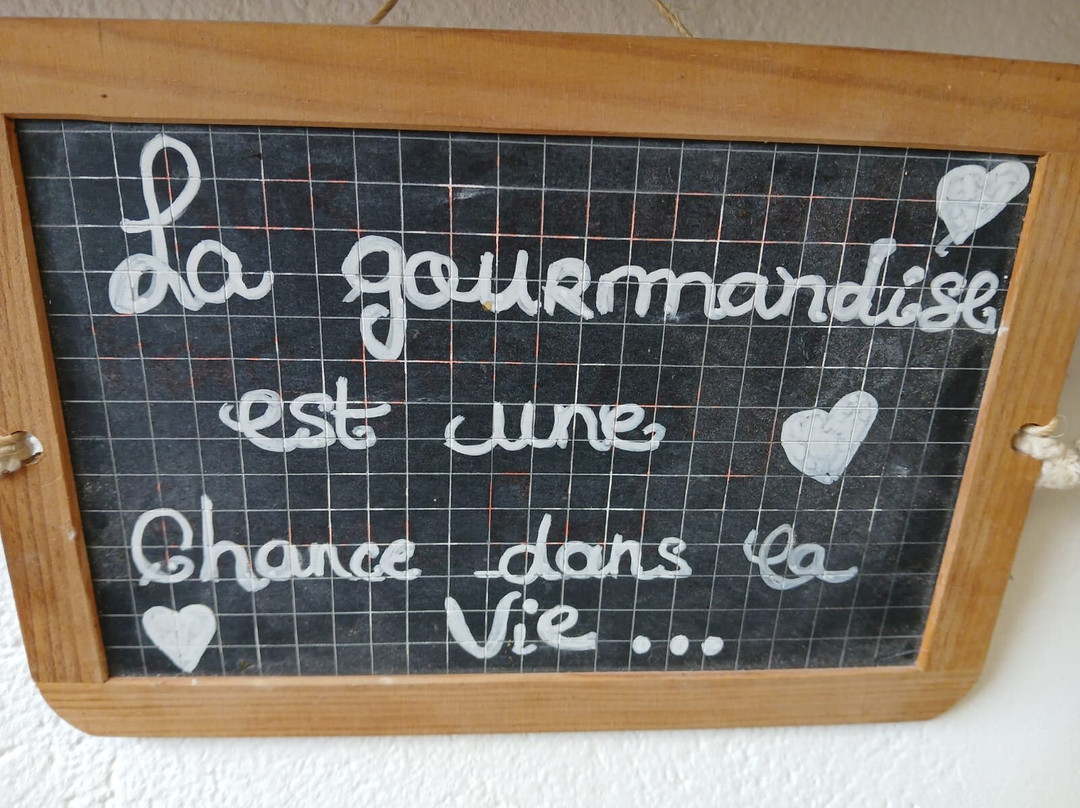 La gourmandise
est une
Chance dans la
Vie...